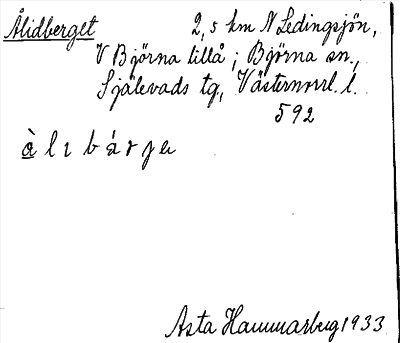 Ålidberget 2,5 km N Ledingsjön,
V Björna lillå; Björna sn.,
Själevads tg, Västernorrl. l.
592
Asta Hammarberg 1933